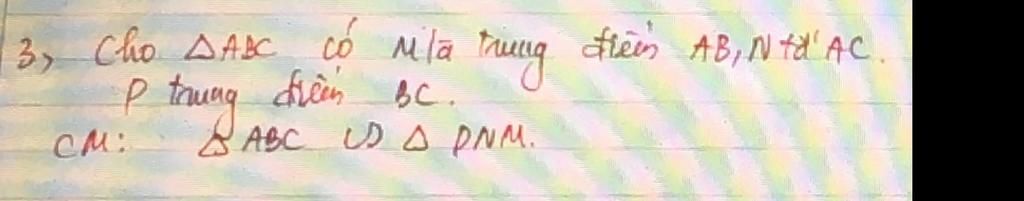 3, Cho △ABC có M là trung điểm AB, N tđ AC.
P trung điểm BC.
CM: △ABC ∽ △PNM.